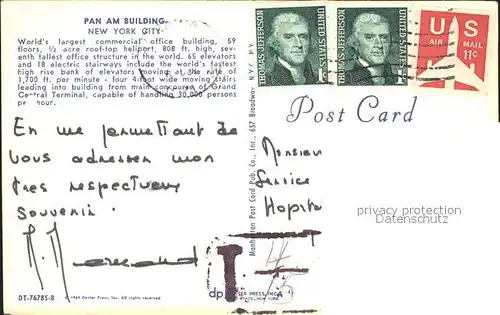 PAN AM BUILDING
NEW YORK CITY
World's largest commercial office building, 59
floors, ½ acre roof-top heliport, 808 ft. high, seventh
tallest office structure in the world. 65 elevators
and 18 electric stairways include the world's fastest
high rise bank of elevators moving at the rate of
1,700 ft. per minute - four 4-foot wide moving stairs
leading into building from main concourse of Grand
Central Terminal, capable of handling 30,000 persons
per hour.
THOMAS JEFFERSON
UNITED STATES
1c
THOMAS JEFFERSON
UNITED STATES
1c
US
AIR MAIL
11c
Post Card
En me permettant de
vous adresser mon
très respectueux
souvenir.
Monsieur
Service
Hopit
privacy protection
Datenschutz
Manhattan Post Card Pub. Co., Inc., 657 Broadway, N.Y.C., N.Y.
T
DT-76785-B
© 1969 Dexter Press, Inc. All rights reserved
dp
DEXTER PRESS, INC.
NEW YORK